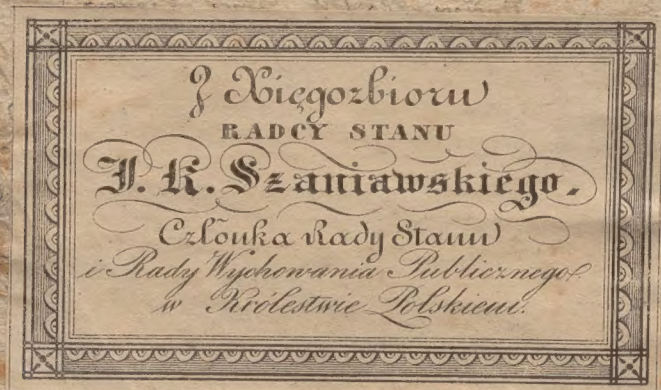 Z Xięgozbioru
RADCY STANU
J. K. Szaniawskiego.
Członka Rady Stanu
i Rady Wychowania Publicznego
w Królestwie Polskiem.